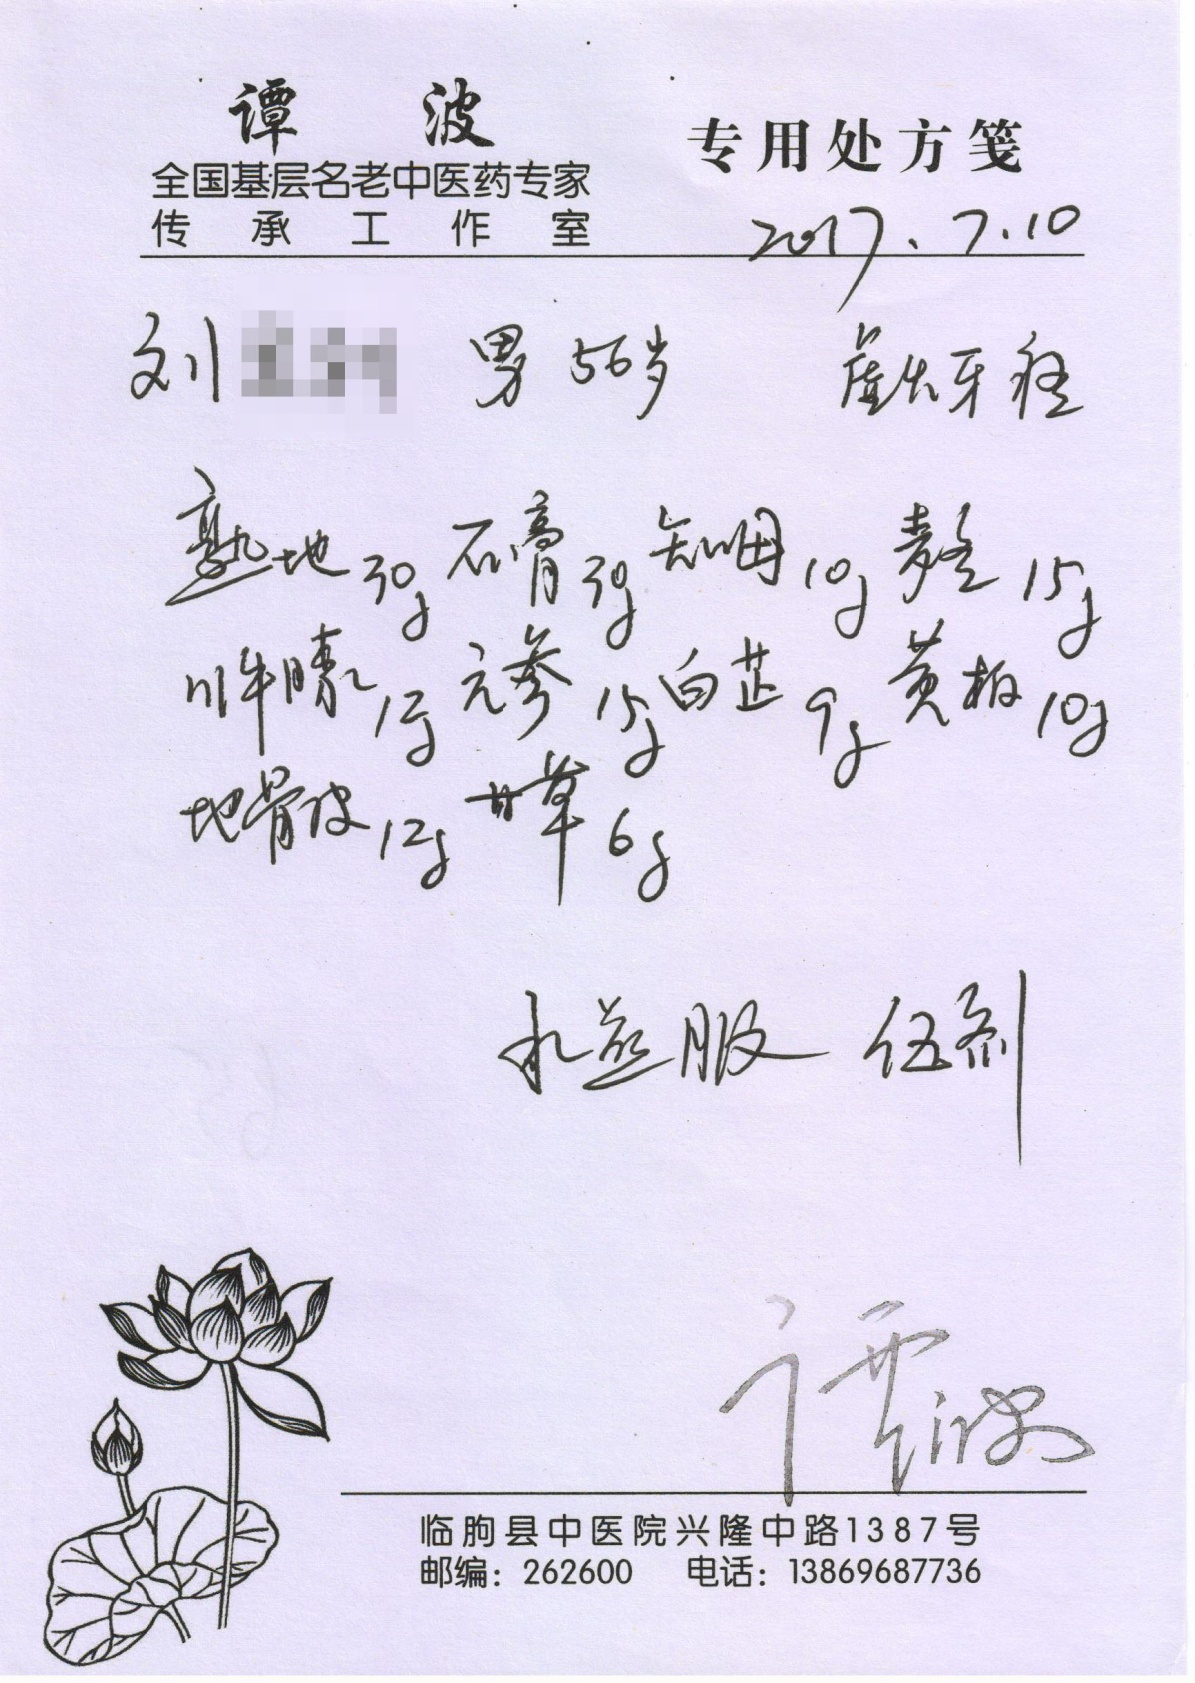 谭波
专用处方笺
全国基层名老中医药专家
传承工作室
2017.7.10
刘 男 56岁 虚火牙痛
熟地30g 石膏30g 知母10g 麦冬15g
川牛膝12g 元参15g 白芷9g 黄柏10g
地骨皮12g 甘草6g
水煎服 伍剂
谭波
临朐县中医院兴隆中路1387号
邮编：262600 电话：13869687736